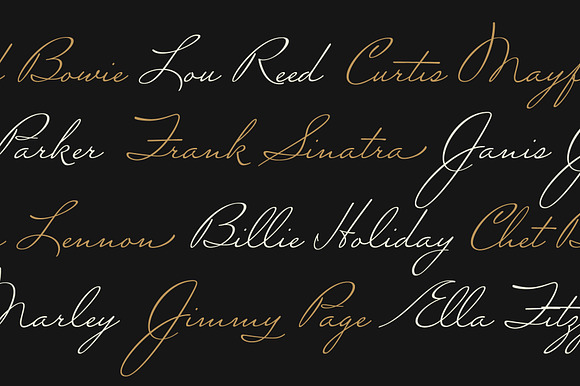 d Bowie Lou Reed Curtis Mayf
Parker Frank Sinatra Janis J
Lennon Billie Holiday Chet B
Marley Jimmy Page Ella Fitz